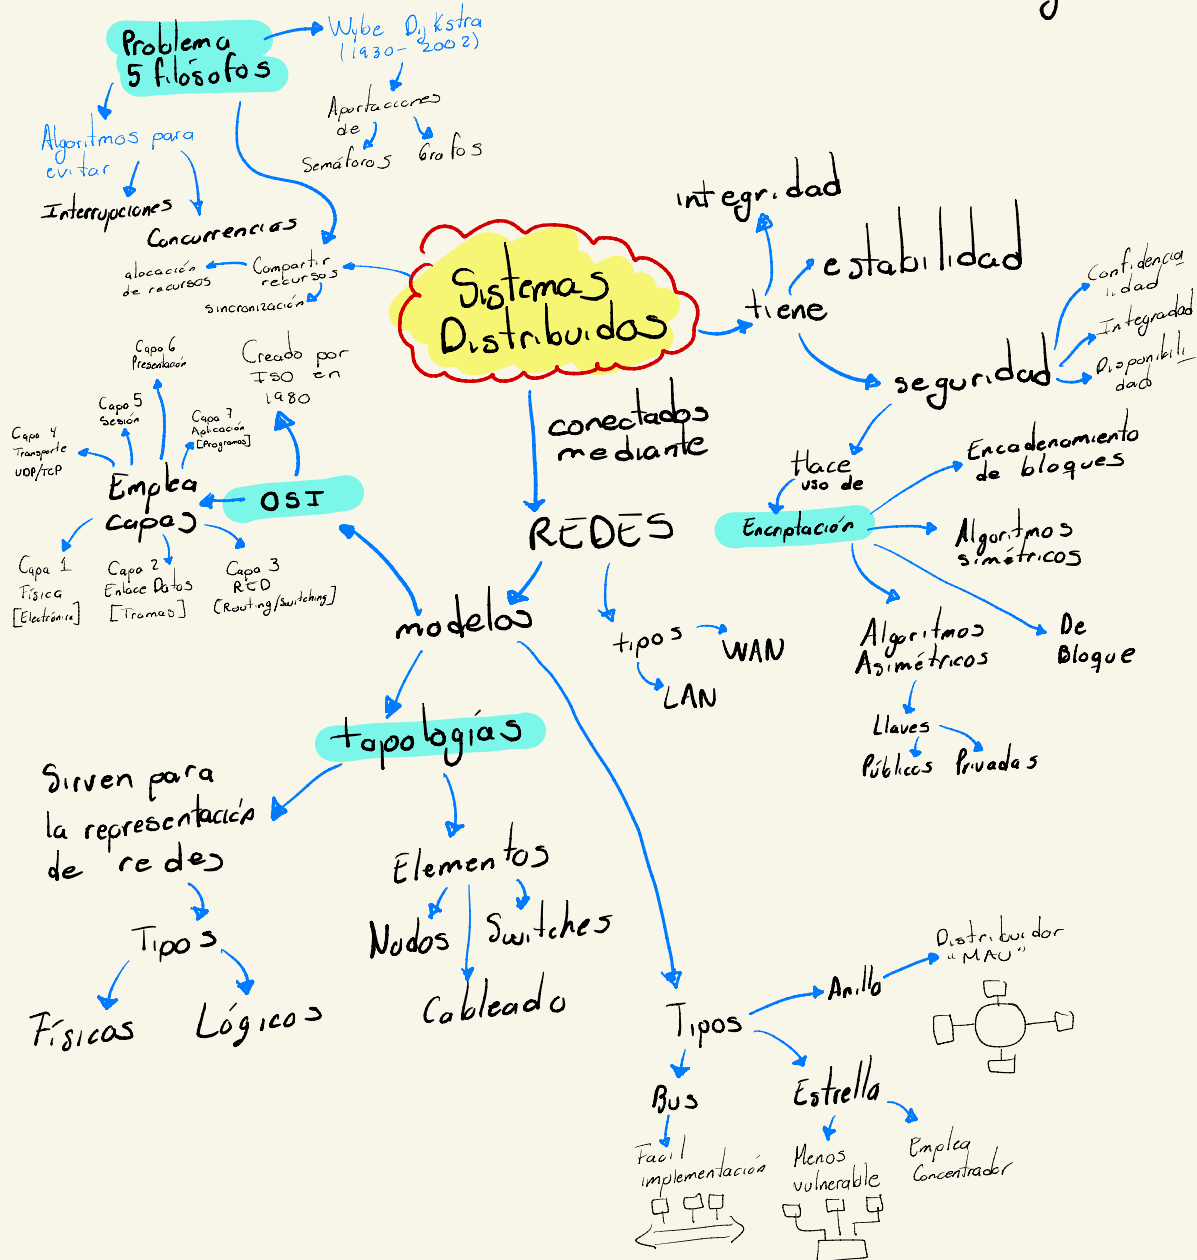 Problema
5 filósofos
Wybe Dijkstra
(1930-2002)
Aportaciones
de
Semáforos
Grafos
Algoritmos para
evitar
Interrupciones
Concurrencias
Compartir
recursos
alocación
de recursos
sincronización
Sistemas
Distribuidos
tiene
integridad
estabilidad
seguridad
Confidencia
lidad
Integradad
Disponibili
dad
Hace
uso de
Encriptación
Encadenamiento
de bloques
Algoritmos
simétricos
De
Bloque
Algoritmos
Asimétricos
Llaves
Públicas
Privadas
conectados
mediante
REDES
tipos
WAN
LAN
modelos
OSI
Creado por
ISO en
1980
Emplea
capas
Capa 6
Presentación
Capa 5
Sesión
Capa 7
Aplicación
[Programas]
Capa 4
Transporte
UDP/TCP
Capa 1
Física
[Electrónica]
Capa 2
Enlace Datos
[Tramas]
Capa 3
RED
[Routing/Switching]
topologías
Sirven para
la representación
de redes
Tipos
Físicos
Lógicos
Elementos
Nodos
Switches
Cableado
Tipos
Anillo
Distribuidor
"MAU"
Bus
Facil
implementación
Estrella
Menos
vulnerable
Emplea
Concentrador